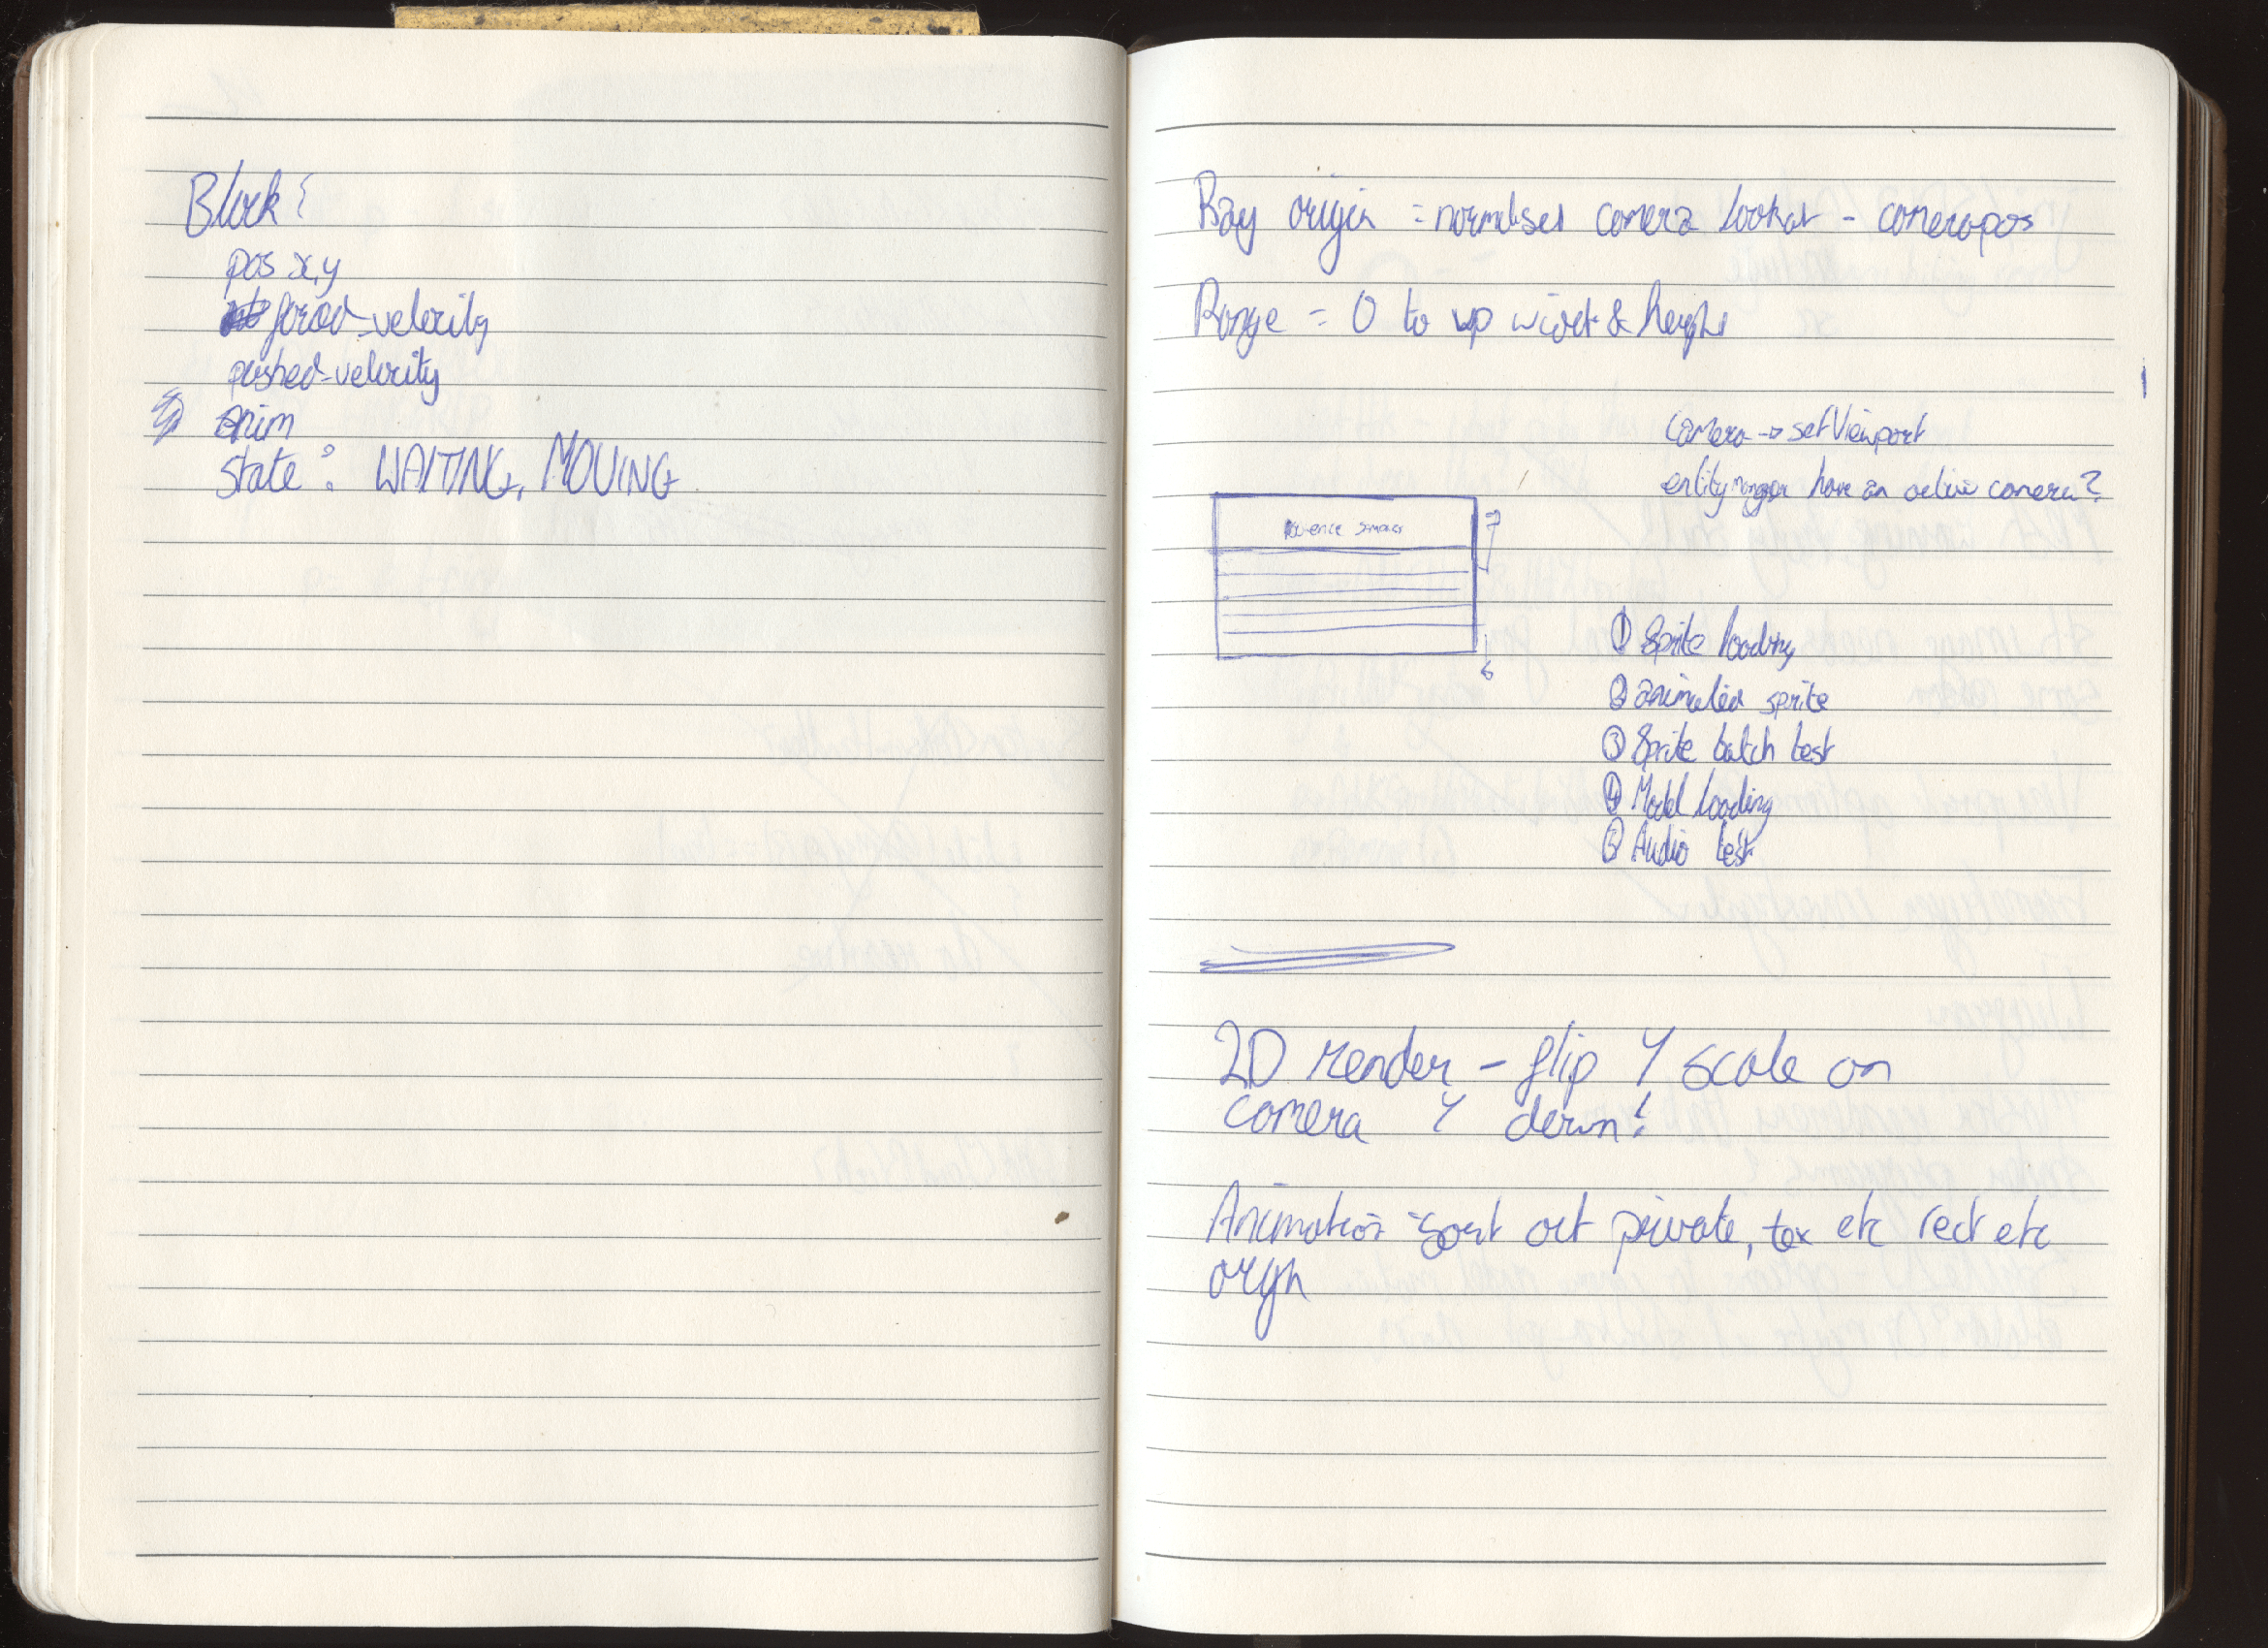 Block {
pos x,y
forced_velocity
pushed_velocity
anim
state : WAITING, MOVING
Ray origin = normalised camera lookat - camerapos
Range = 0 to vp widt & height
camera -> setViewport
entityManager have an active camera?
① Sprite loading
② animated sprite
③ Sprite batch test
④ Model loading
⑤ Audio test
2D render - flip Y scale on
camera Y down!
Animation - sort out private, tex etc rect etc
origin